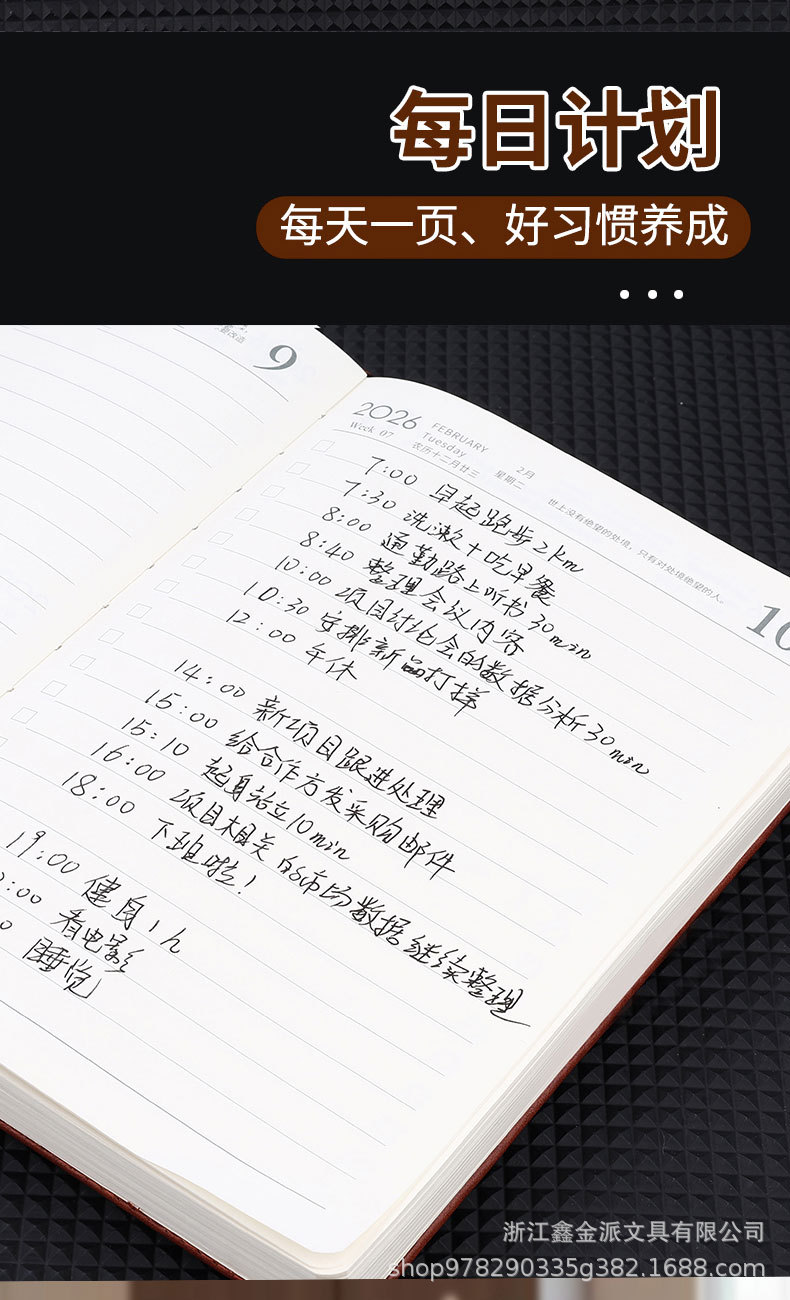 每日计划
每天一页、好习惯养成
9
2026 FEBRUARY 2月
Week 07 Tuesday 星期二
农历十二月廿三
世上没有绝望的处境，只有对处境绝望的人。
10
7:00 早起跑步2km
7:30 洗漱+吃早餐
8:00 通勤路上听书30min
8:40 整理会议内容
10:00 项目讨论会的数据分析30min
10:30 安排新品打样
12:00 午休
14:00 新项目跟进处理
15:00 给合作方发采购邮件
15:10 起身站立10min
16:00 项目相关的市场数据继续整理
18:00 下班啦！
19:00 健身1h
:00 看电影
0 睡觉
浙江鑫金派文具有限公司
shop978290335g382.1688.com